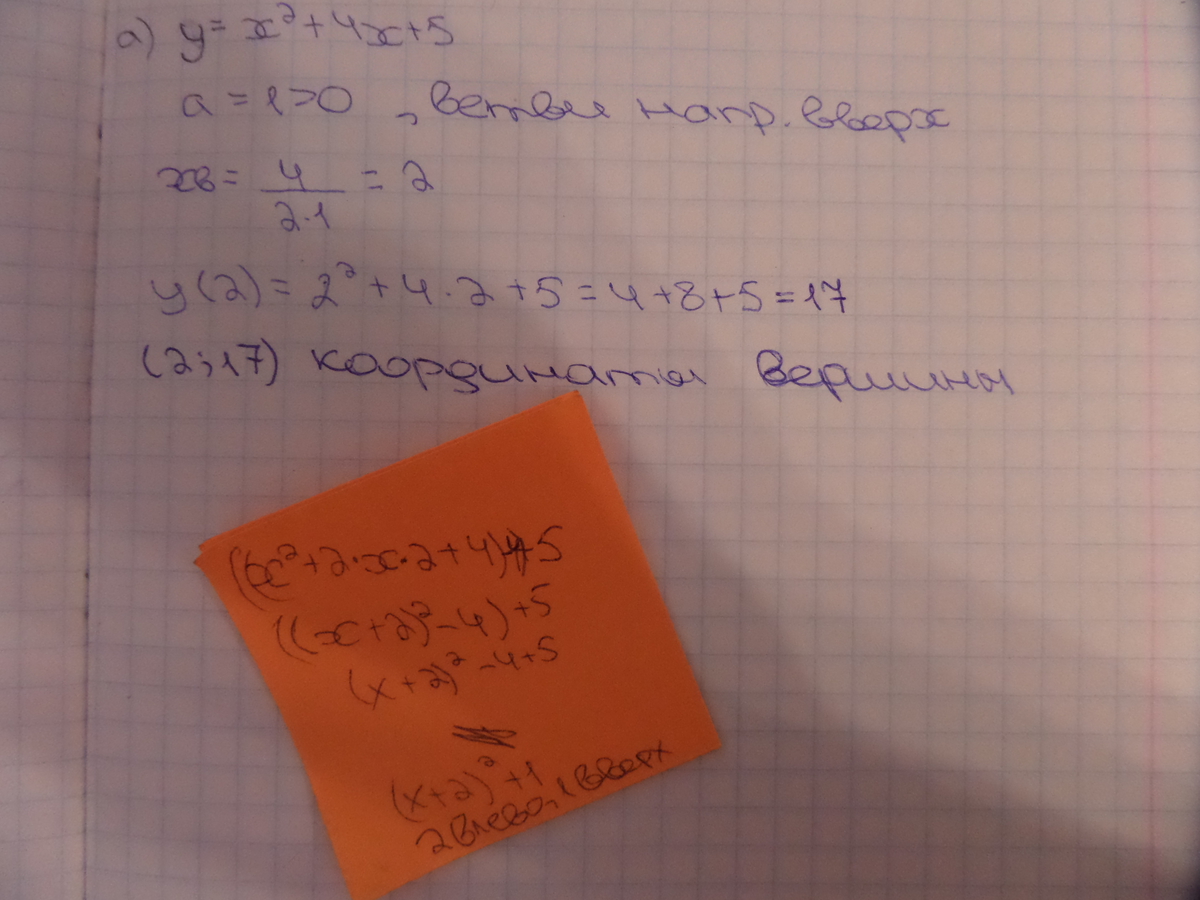 а) y = x² + 4x + 5
a = 1 > 0, ветви напр. вверх
xв = 4/(2·1) = 2
y(2) = 2² + 4·2 + 5 = 4 + 8 + 5 = 17
(2; 17) координаты вершины
(x² + 2·x·2 + 4) + 5
((x + 2)² - 4) + 5
(x + 2)² - 4 + 5
(x + 2)² + 1
2 влево, 1 вверх